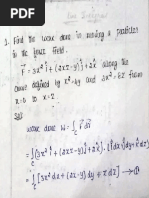 1. Find the work done in moving a particle
in the force field.
F = 3x² î + (2xz - y) ĵ + zk̂ along the
curve defined by x² = 4y and 3x³ = 8z from
x = 0 to x = 2
Sol
work done W = ∫ F dr
= ∫c (3x² î + (2xz - y) ĵ + zk̂) . (dx î + dy ĵ + dz k̂)
= ∫c [3x² dx + (2xz - y) dy + z dz] → ①